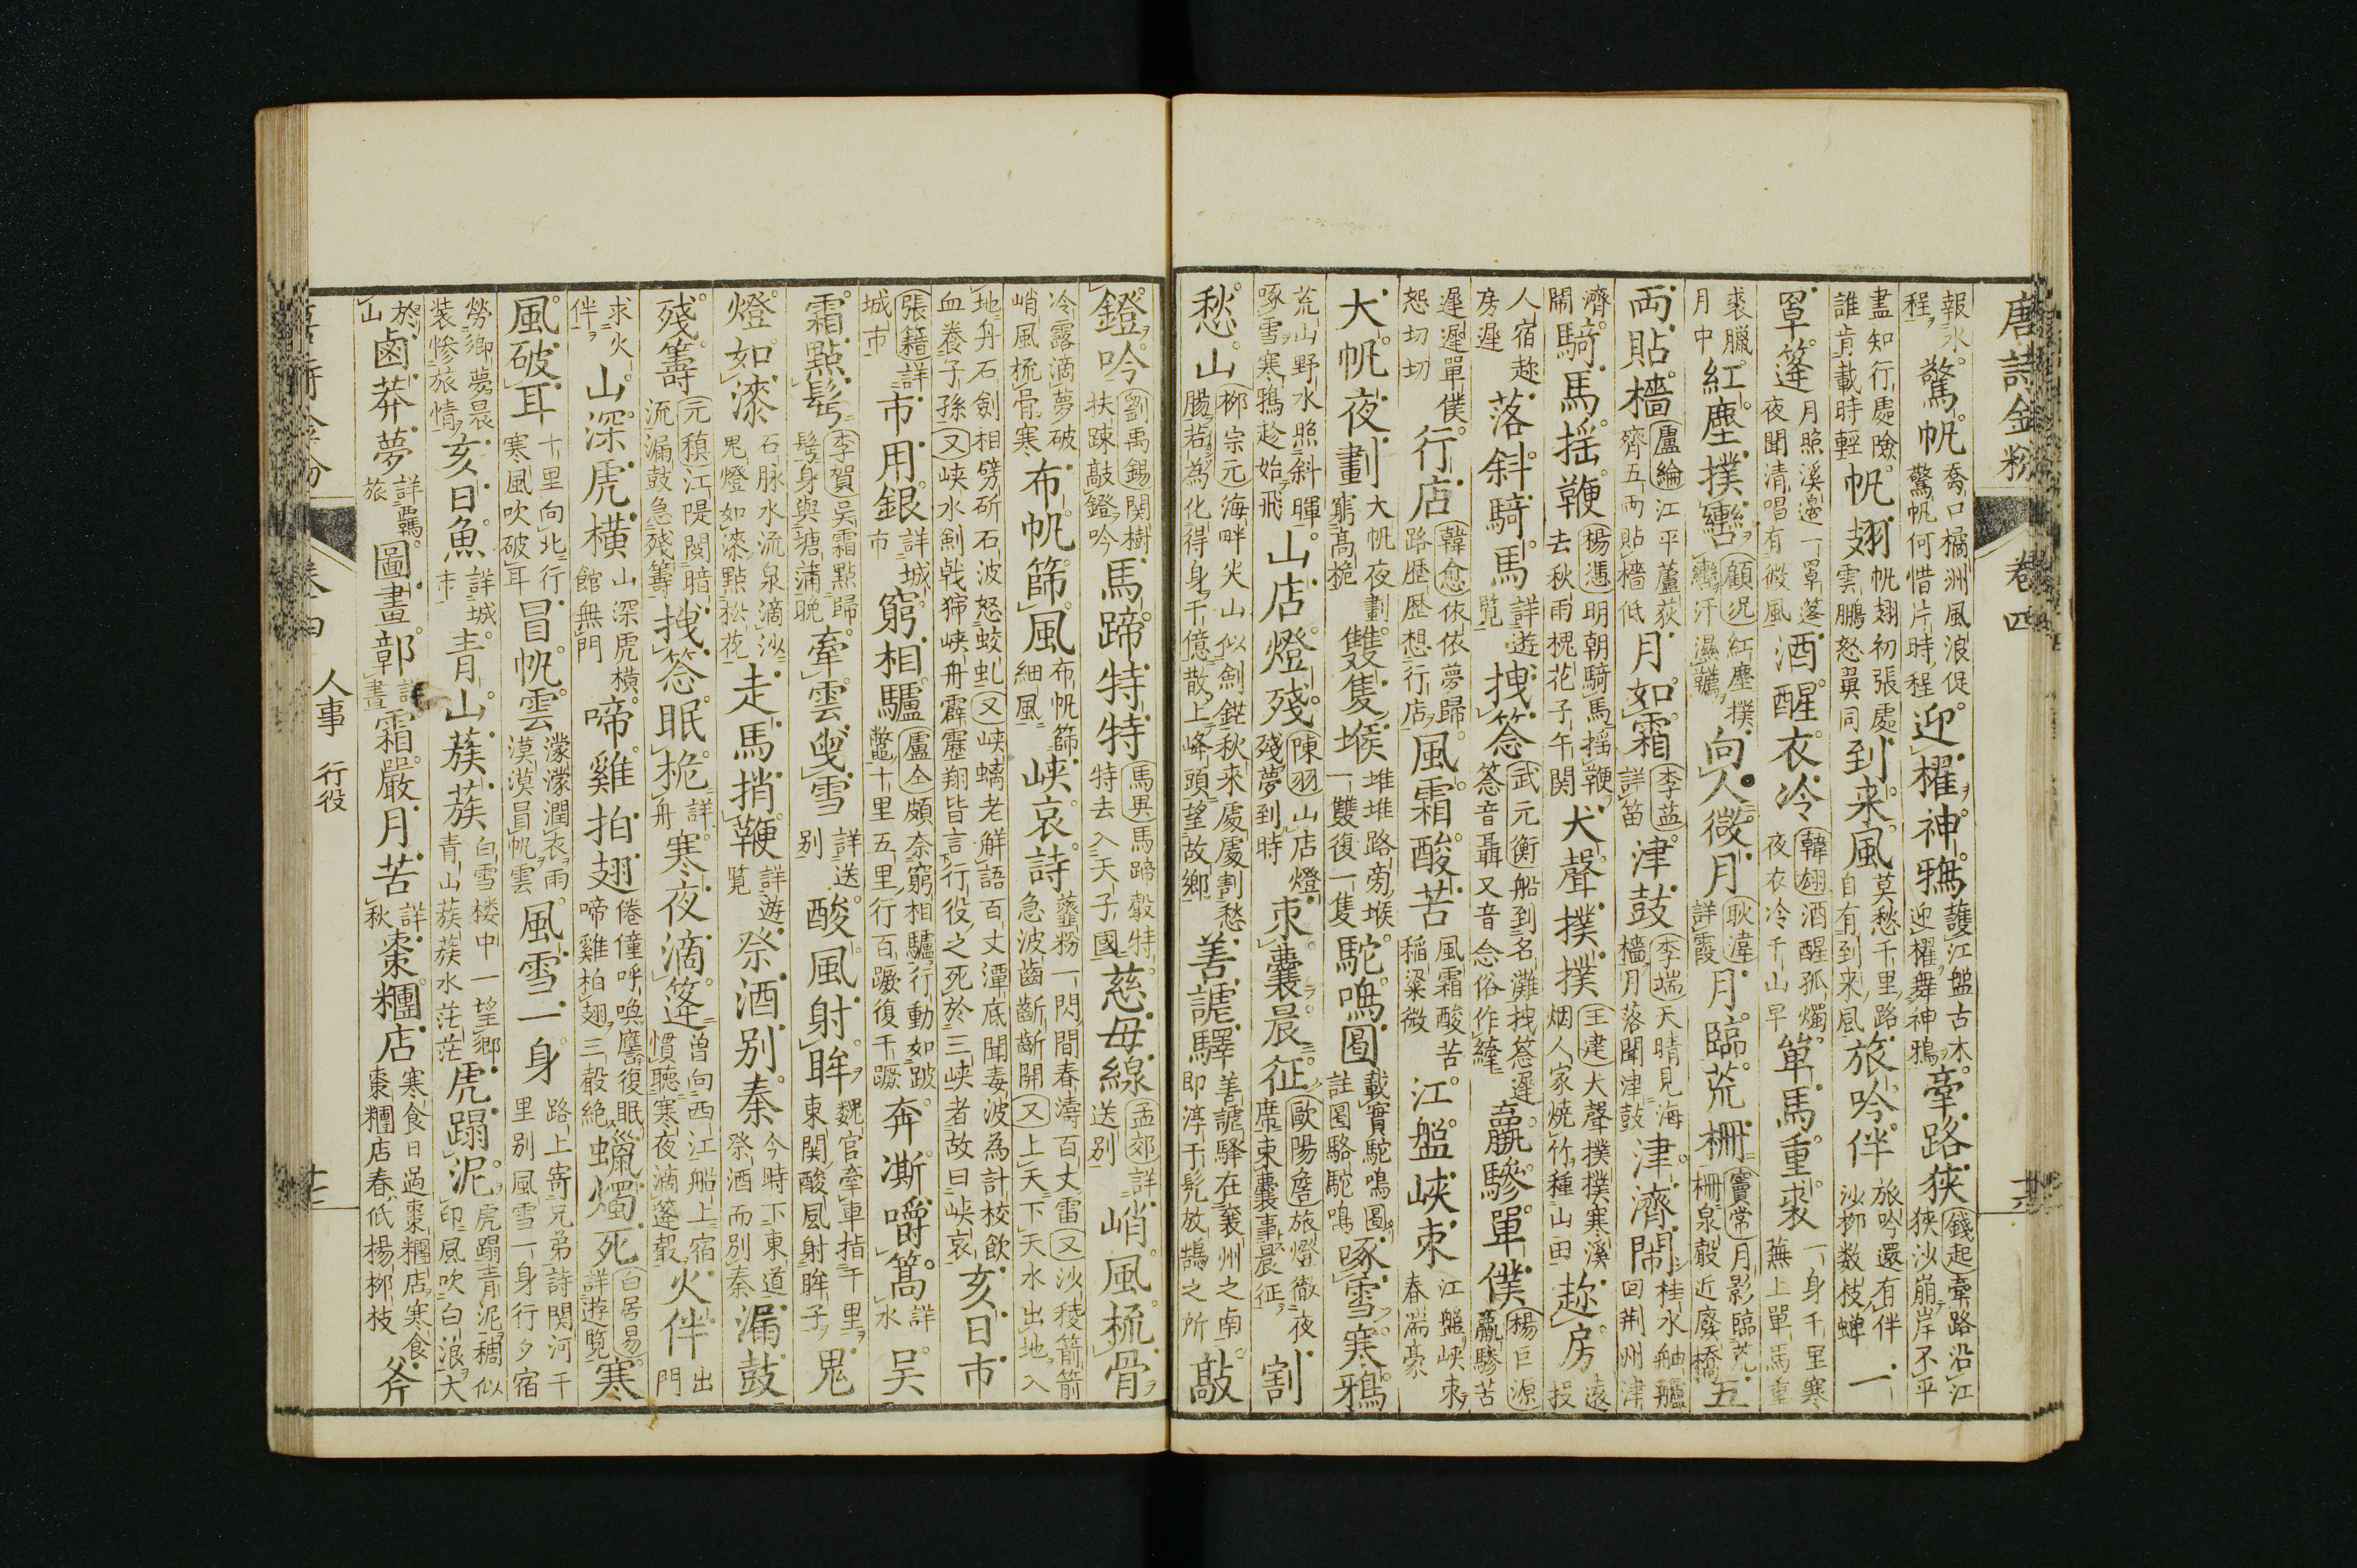 唐詩金粉 卷四
報水程驚帆喬口橘洲風浪促驚帆何惜片時程迎櫂神鴉護江盤古木迎櫂舞神鴉牽路狹錢起牽路沿江狹沙崩岸不平
盡知行處險誰肯載時輕帆翅帆翅初張處雲鵬怒翼同到来風莫愁千里路自有到来風旅吟伴旅吟還有伴沙柳数枝蝉一
罩篷月照溪邊一罩篷夜聞清唱有微風酒醒衣冷韓翃酒醒孤燭夜衣冷千山早単馬重裘一身千里寒蕪上單馬重
裘臘月中紅塵撲轡顧况紅塵撲轡汗濕韉向人微月耿湋詳霞月臨荒柵竇常月影臨荒柵泉聲近廢橋五
両貼檣盧綸江平蘆荻齊五両貼檣低月如霜李益詳笛津鼓李端天晴見海檣月落聞津鼓津濟閙桂水舳艫回荆州津
濟閙騎馬揺鞭楊憑明朝騎馬揺鞭去秋雨槐花子午関犬聲撲撲王建犬聲撲撲寒溪烟人家燒竹種山田趂房遠投
人宿趂房遲落斜騎馬詳遊覧拽䇲武元衡船到名灘拽䇲遲䇲音聶又音念俗作縴羸驂單僕楊巨源羸驂苦
遲遲單僕怨切切行店韓愈依依夢歸路歴歴想行店風霜酸苦風霜酸苦稲粱微江盤峽束江盤峽束春湍豪
大帆夜劃大帆夜劃窮高桅雙隻堠堆堆路旁堠一雙復一隻駝鳴圁載實駝鳴圁註圁駱駝鳴啄雪寒鴉
荒山野水照斜暉啄雪寒鴉趁始飛山店燈殘陳羽山店燈殘夢到時束囊晨征歐陽詹旅燈徹夜席束囊事晨征割
愁山栁宗元海畔尖山似劍鋩秋来處處割愁腸若為化得身千億散上峰頭望故鄉善謔驛善謔驛在襄州之南即淳于髡放鵠之所敲
鐙吟劉禹錫関樹扶踈敲鐙吟馬蹄特特馬異馬蹄聲特特去入天子國慈母線孟郊詳送别峭風梳骨
冷露滴夢破峭風梳骨寒布帆篩風布帆篩細風峽哀詩虀粉一閃間春濤百丈雷又沙稜箭箭急波齒齗齗開又上天下天水出地入
地舟石劍相劈斫石波怒蛟虬又峽螭老解語百丈潭底聞毒波為計校飲血養子孫又峽水劍戟獰峽舟霹靂翔皆言行役之死於三峽者故曰峽哀亥日市
張籍詳城市市用銀詳城市窮相驢盧仝頗奈窮相驢行動如跛鼈十里五里行百蹶復千蹶奔澌嚼篙詳水吴
霜點髩李賀吴霜點歸髩身與塘蒲晚牽雲曵雪詳送别酸風射眸魏官牽車指千里東関酸風射眸子鬼
燈如漆石脉水流泉滴沙鬼燈如漆點松花走馬捎鞭詳遊覧祭酒别秦今時下東道祭酒而别秦漏鼓
殘籌元稹江隄閲暗流漏鼓急殘籌拽䇲眠桅詳舟寒夜滴篷曽向西江船上宿慣聽寒夜滴篷聲火伴出門
求火伴山深虎横山深虎横館無門啼雞拍翅倦僮呼喚譍復眠啼雞拍翅三聲絶蠟燭死白居易詳遊覧寒
風破耳十里向北行寒風吹破耳冒帆雲濛濛潤衣雨漠漠冒帆雲風雪一身路上寄兄弟詩関河千里别風雪一身行夕宿
勞鄉夢晨装惨旅情亥日魚詳城市青山蔟蔟白雪楼中一望鄉青山蔟蔟水茫茫虎蹋泥虎蹋青泥稠似印風吹白浪大
於山鹵莽夢詳羇旅圖畫鄣詳畫霜嚴月苦詳秋棗糰店寒食日過棗糰店寒食棗糰店春低楊柳枝斧
卷四 人事 行役